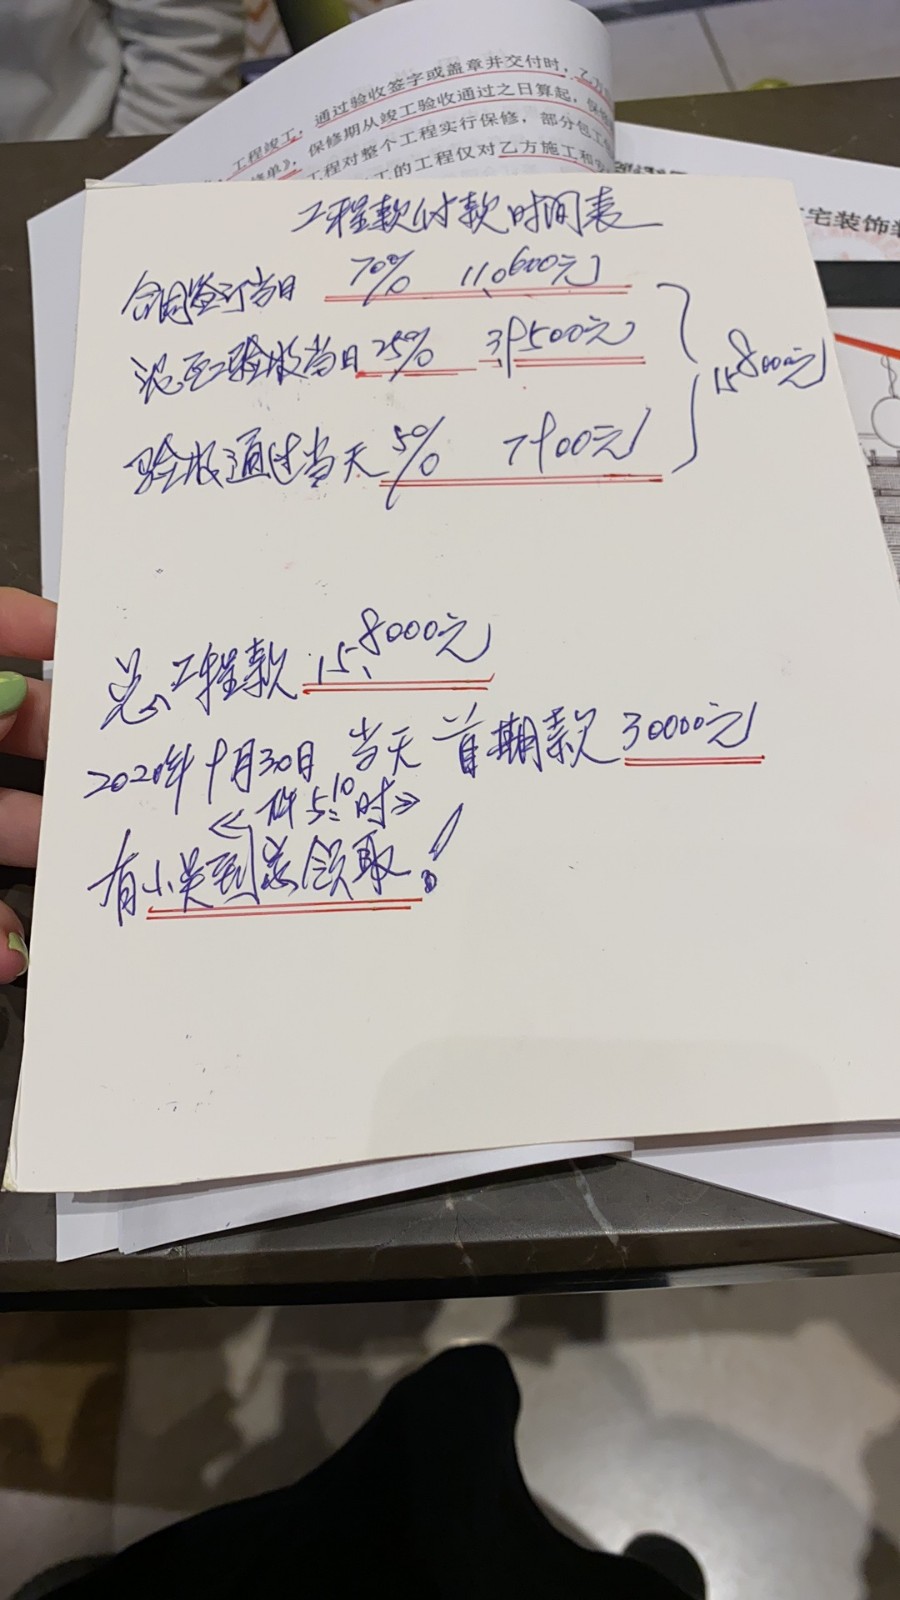 工程竣工，通过验收签字或盖章并交付时，乙方
修单》，保修期从竣工验收通过之日算起，保修
工程对整个工程实行保修，部分包工
工的工程仅对乙方施工和
宅装饰装
工程款付款时间表
合同签订当日 70% 110600元
泥工验收当日25% 39500元
15800元
验收通过当天5% 7900元
总工程款 158000元
2020年9月30日 当天 首期款 30000元
有小吴到总领取！